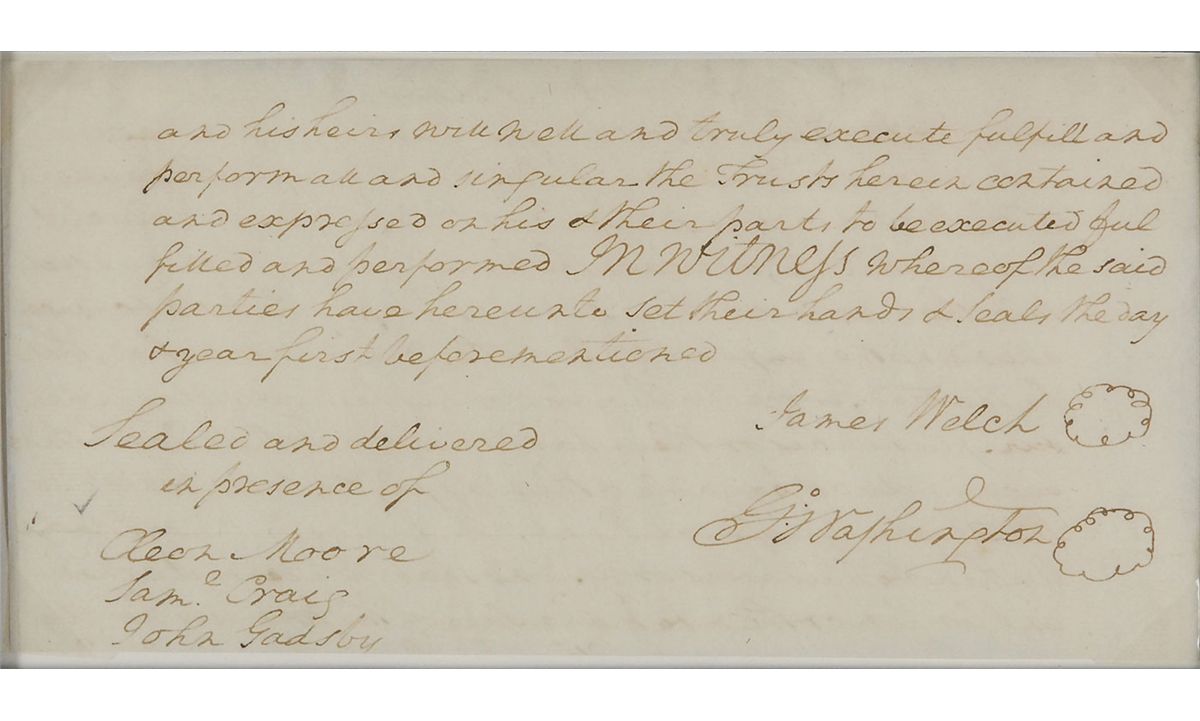 and his heirs will well and truly execute fulfill and
perform all and singular the Trusts herein contained
and expressed on his & their parts to be executed ful
filled and performed In Witness whereof the said
parties have hereunto set their hands & seals the day
& year first beforementioned
James Welch
Sealed and delivered
in presence of
Go: Washington
Cleon Moore
Saml. Craig
John Gadsby